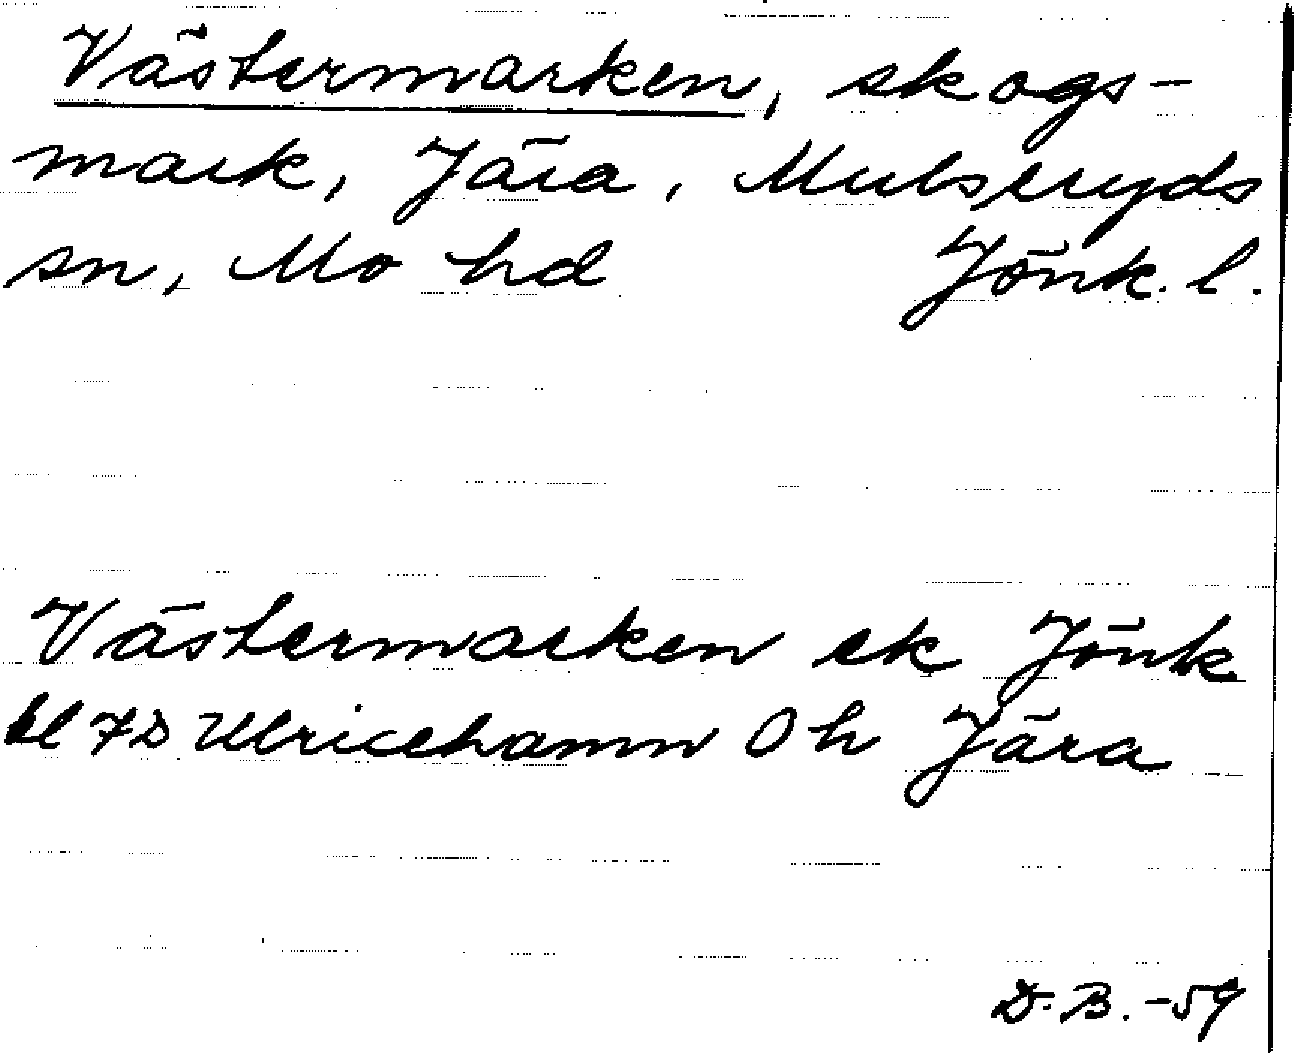 Västermarken, skogs-
mark, Jära, Mulseryds
sn, Mo hd Jönk. l.
Västermarken ek Jönk
bl 7D Ulricehamn Oh Jära
D.B. -59